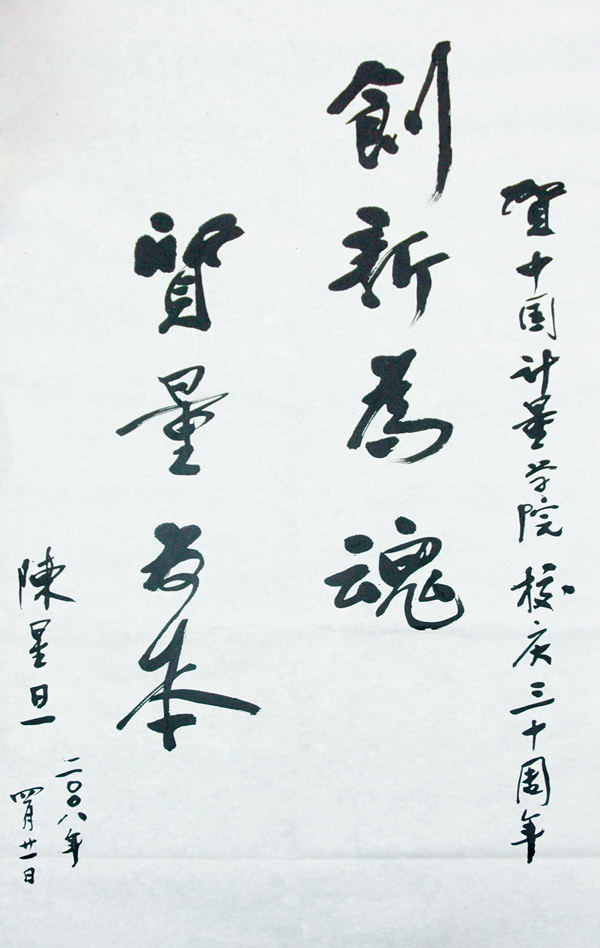 贺中国计量学院校庆三十周年
創新為魂
質量為本
陳星旦
二〇〇八年
四月廿一日